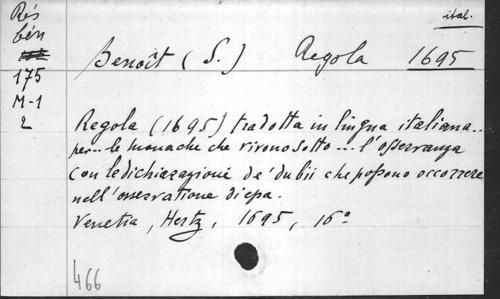 Rés
bén
175
M-1
2
ital.
Benoît (S.) Regola 1695
Regola (1695) tradotta in lingua italiana..
per... le monache che vivono sotto ... l'osservanza
con le dichiarazioni de' dubii che possono occorrere
nell'osservatione di epa.
Venetia, Hertz, 1695, 16°
466